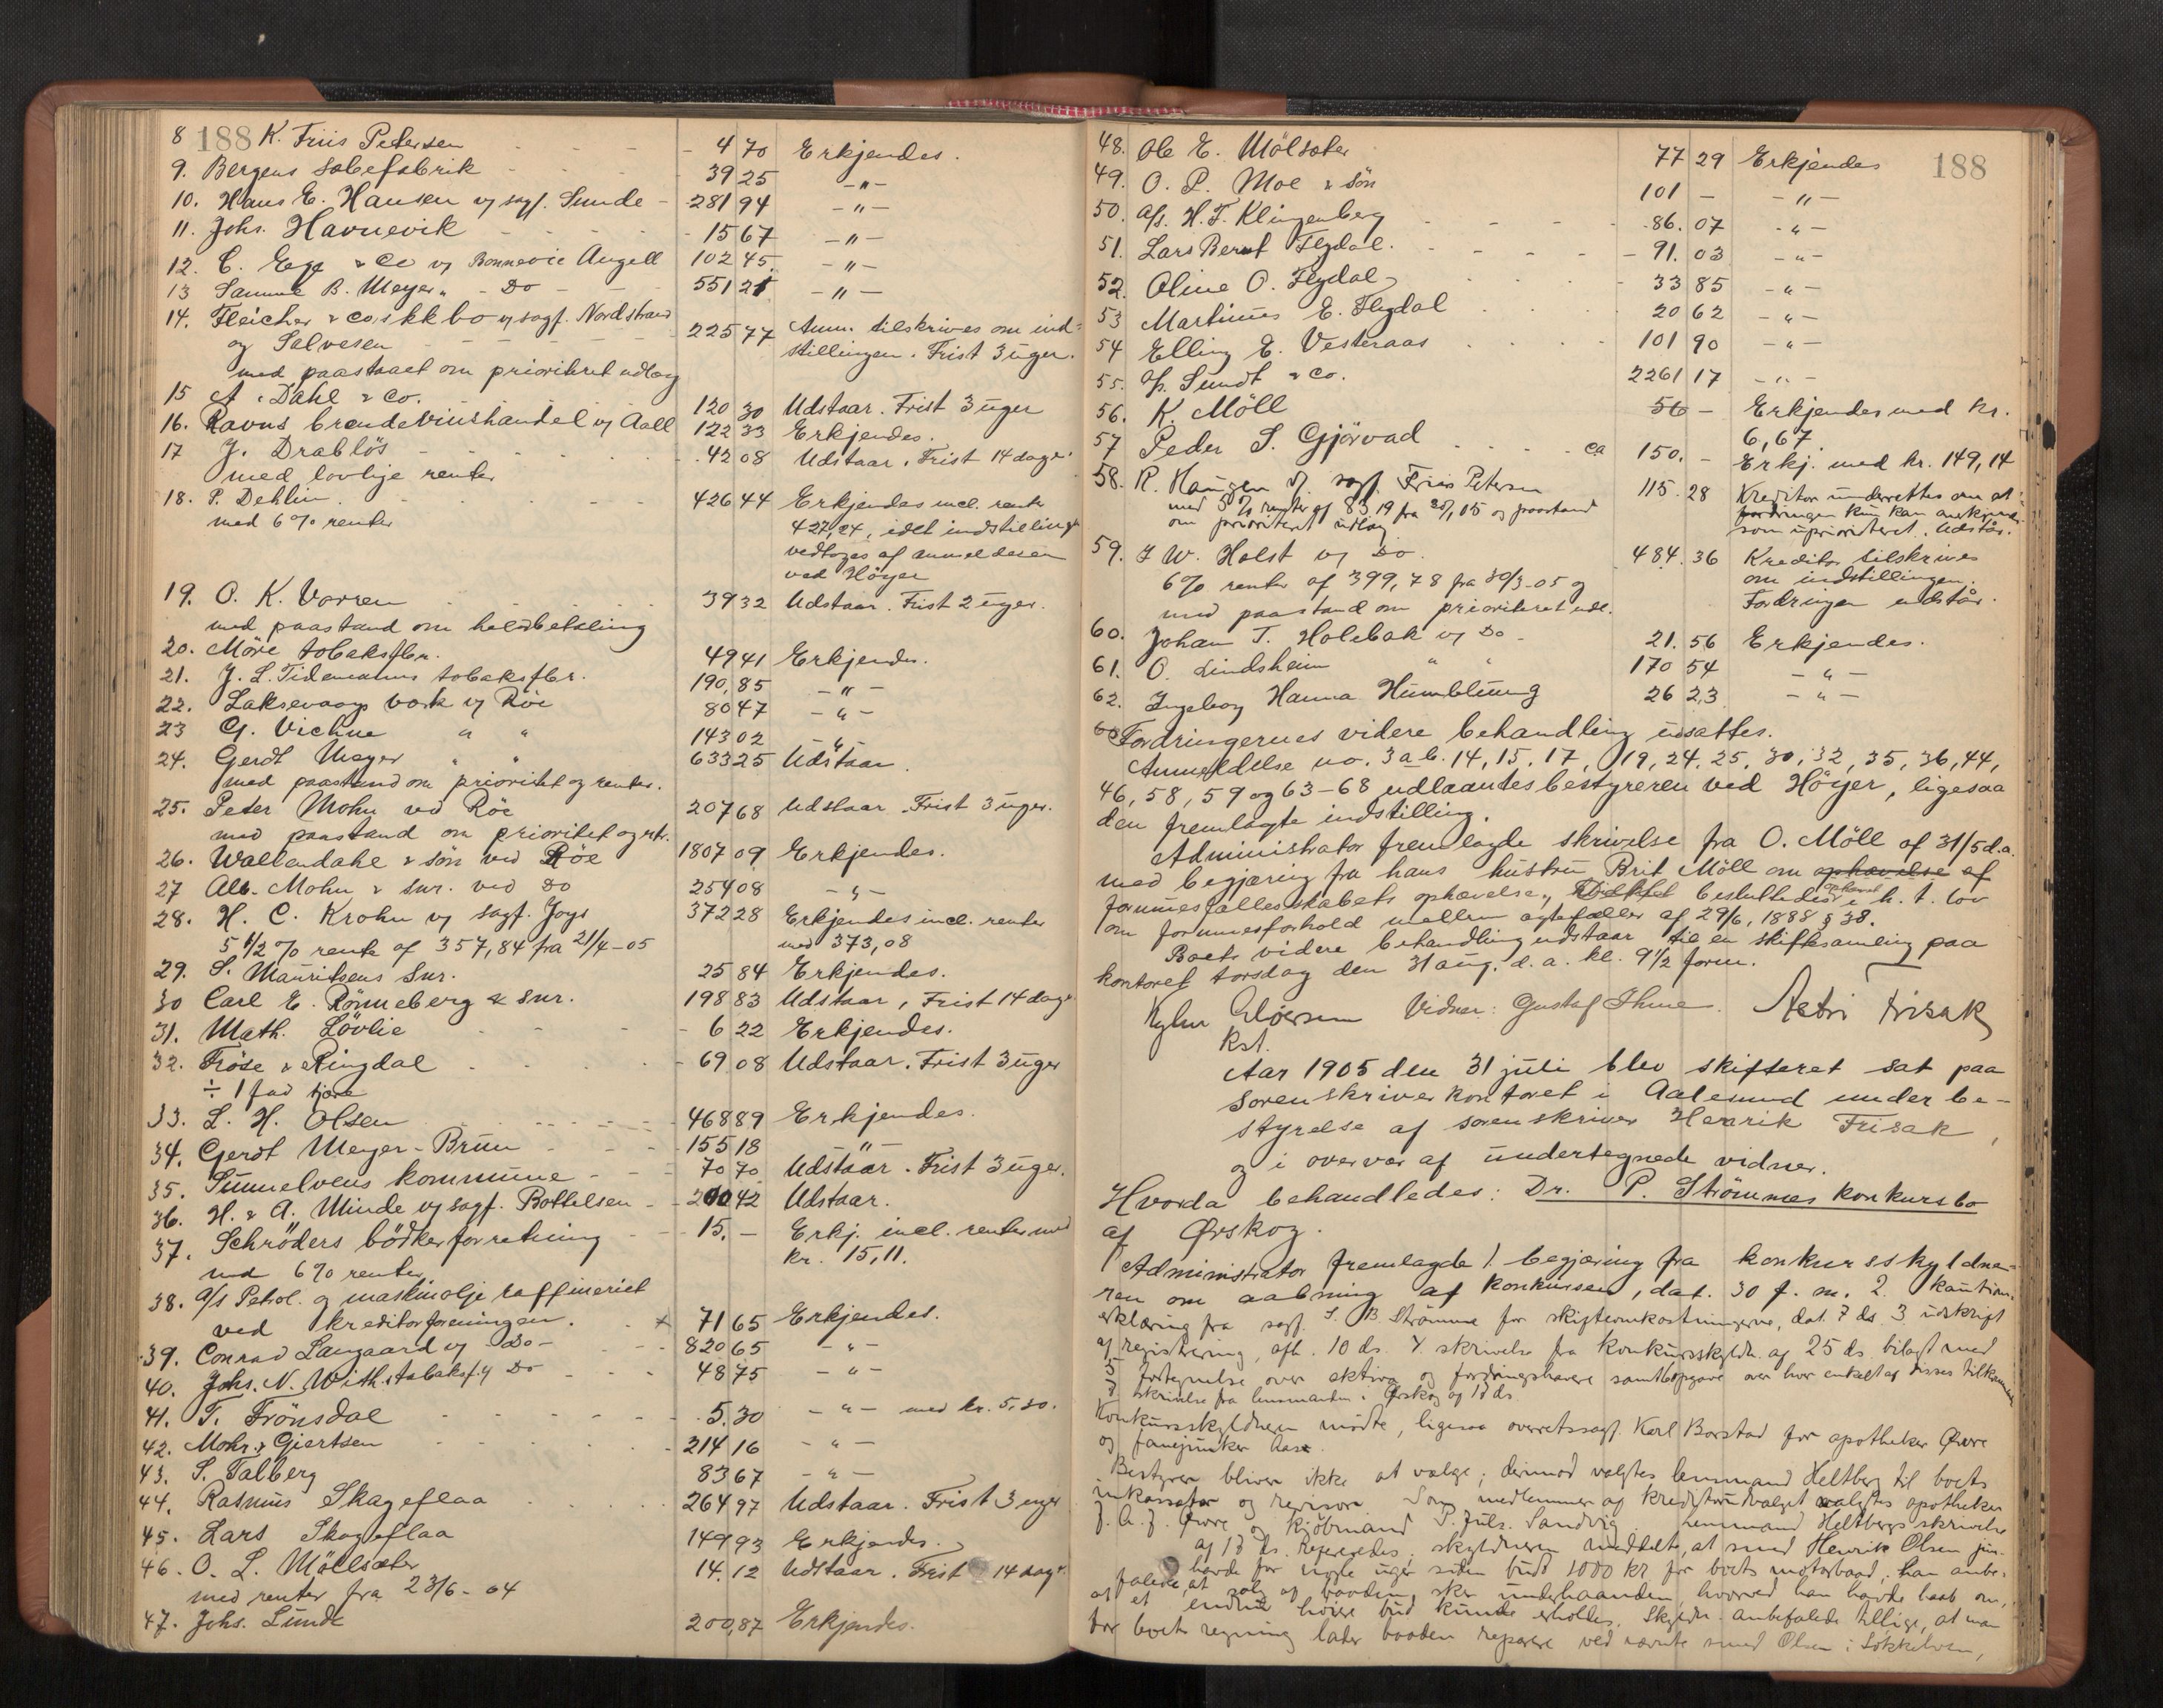 188
8 K. Friis Pedersen - - - 4 70 Erkjendes.
9. Bergens sæbefabrik - - - 39 25 -"-
10. Hans E. Hansen v/ sagf. Sunde - 281 94 -"-
11. Johs. Havnevik - - - 15 67 -"-
12. C. Ege & Co v/ Bonnevie Angell 102 45. -"-
13 Samme B. Meyer " - Do - 551 21 -"-
14. Fleicher & co.s kkbo v/ sagf. Nordstrand
og Salvesen - - - 225 77 Anm. tilskrives om ind=
stillingen. Frist 3 uger.
med paastaaet om prioritert udlæg
15 A. Dahl & Co. 120 30 Udstaar. Frist 3 uger
16. Ravns brændevinshandel v/ Aall 122 33 Erkjendes.
17 J. Drabløs - - - 42 08 Udstaar. Frist 14 dage.
med lovlige renter
18. P. Dehlin. - - - 426 44 Erkjendes incl. renter
med 6 % renter 427,24, idet indstilling
vedtages af anmelderen
ved Höyer
19. O. K. Vorren 39 32 Udstaar. Frist 2 uger.
med paastand om helsbetaling
20. Möre tobaksfbr. 49 41 Erkjendes.
21. J. L. Tidemanns tobaksfbr. 190,85 -"-
22. Laksevaags værk v/ Röe 80 47 -"-
23 G. Vichne " " 143 02 -"-
24. Gerdt Meyer " " 633 25 Udstaar.
med paastand om prioritet og renter.
25. Peter Mohn ved Röe 207 68 Udstaar. Frist 3 uger.
med paastand om prioritet og rtr.
26. Wallendahl & søn ved Röe 1807 09 Erkjendes.
27 Alb. Mohn & snr. ved Do 254 08 -"-
28. H. C. Krohn v/ sagf. Joys 372 28 Erkjendes incl. renter
5 1/2 % rente af 357,84 fra 21/4-05 med 373,08
29. S. Mauritsens snr. 25 84 Erkjendes.
30 Carl E. Rönneberg & snr. 198 83 Udstaar, Frist 14 dage
31. Math. Lövlie - - - 6 22 Erkjendes.
32. Fröse & Ringdal - - - 69 08 Udstaar. Frist 3 uger
÷ 1 fad tjære
33. L. H. Olsen - - - 468 89 Erkjendes.
34. Gerdt Meyer-Bruun - - 155 18 -"-
35. Sunnelvens kommune - - 70 70 Udstaar. Frist 3 uger.
36. H. & A. Minde v/ sagf. Bottelsen - 200 42 Udstaar.
37. Schröders bödkerforretning - 15. - Erkj. incl. renter med
med 6 % renter kr. 15,11.
38. A/s Petrol. og maskinolje raffineriet
ved kreditorforeningen. x 71 65 Erkjendes.
39. Conrad Langaard v/ - Do - 820 65 -"-
40. Johs. N. With. tobaksf. v/ Do - 48 75 -"-
41. T. Frönsdal - - - 5.30 -"- med kr. 5,30.
42. Mohr & Giertsen - - - 214 16 -"-
43. S. Talberg 83 67 -"-
44. Rasmus Skageflaa 264 97 Udstaar. Frist 3 uger
45. Lars Skageflaa 149 93 Erkjendes.
46. O. L. Möllsæter 14.12 Udstaar. Frist 14 dage.
med renter fra 23/6-04
47. Johs. Lunde 200,87 Erkjendes.
188
48. Ole E. Mölsæter 77 29 Erkjendes
49. O. P. Moe & sön 101 - -"-
50. A/s. H. F. Klingenberg - - - 86.07 -"-
51. Lars Bernt Flydal. - - - 91.03 -"-
52. Oline O. Flydal 33 85 -"-
53 Martinus E. Flydal 20 62 -"-
54 Elling E. Vesteraas 101 90 -"-
55. P. Sundt & Co. 2261 17 -"-
56. K. Möll 56 - Erkjendes med kr.
6,67.
57 Peder S. Gjörvad - - - ca 150. - Erkj. med kr. 149,14
58. R. Haugen v/ sagf. Friis Petersen 115.28 Kreditor underrettes om at
med 5 % renter af 83 19 fra 20/1 05 og paastand fordringen kun kan anerkjendes
om prioritert udlæg som uprioritert. Udstår.
59. J W. Holst v/ Do. 484.36 Kreditor tilskrives
6 % renter af 399,78 fra 30/3-05 og om indstillingen.
med paastand om prioritert udl. Fordringen udstår.
60. Johan T. Holebak v/ Do - 21.56 Erkjendes.
61. O. Lindsheim " " 170 54 -"-
62. Ingeborg Hanna Humblung 26 23 -"-
Fordringernes videre behandling udsattes.
Anmeldelse no. 3 a b. 14, 15, 17, 19, 24, 25, 30, 32, 35, 36, 44,
46, 58, 59 og 63-68 udlaantes bestyreren ved Höyer, ligesaa
den fremlagte indstilling.
Administrator fremlagde skrivelse fra O. Möll af 31/5 d.a.
med begjæring fra hans hustru Brit Möll om ophævelse af
formuesfællesskabets ophævelse, Dekket besluttedes ophævet i h. t. lov
om formuesforhold mellem ægtefæller af 29/6, 1888 § 38.
Boets videre behandling udstaar til en skiftesamling paa
kontoret torsdag den 31 aug. d. a. kl. 9 1/2 form.
Vidner: Gustaf Ihme.
Kst.
Aar 1905 den 31 juli blev skifteret sat paa
sorenskriverkontoret i Aalesund under be-
styrelse af sorenskriver Henrik Frisak,
og i overvær af undertegnede vidner.
Hvorda behandledes: Dr. P. Strömmes konkursbo
af Ørskog.
Administrator fremlagde 1. begjæring fra konkursskyldne-
ren om aabning af konkursen, dat. 30 f. m. 2. kautions
erklæring fra sagf. S. B. Strömme for skifteomkostningerne, dat. 7 ds. 3 udskrift
af registrering, afh. 10 ds. 4. skrivelse fra konkursskyldn. af 25 ds. bilagt med
5 fortegnelse over aktiva og fordringshavere samt 6 opgave over hver enkelt af disses tilkommende
7 skrivelse fra lensmanden i Ørskog af 18 ds.
Konkursskyldneren mödte, ligesaa overretssagf. Karl Borstad for apotheker Øwre
og fanejunker Aase.
Bestyrer bliver ikke at vælge; derimod valgtes lensmand Heltberg til boets
inkassator og revisor. Som medlemmer af kreditorudvalget valgtes apotheker
J. A. J. Øwre og kjöbmand P. Juls. Sandvig. Lensmand Heltbergs skrivelse
af 18 ds. refereredes; skyldneren meddelte, at smed Henrik Olsen jun.
havde for nogle uger siden budt 1000 kr. for boets motorbaad; han anbe-
falede, at salg af baaden sker underhaanden, hvorved han havde haab om,
at et endnu höiere bud kunde erholdes. Skyldn. anbefalede tillige, at man
for boets regning lader baaden reparere ved nævnte smed Olsen i Søkkelven,